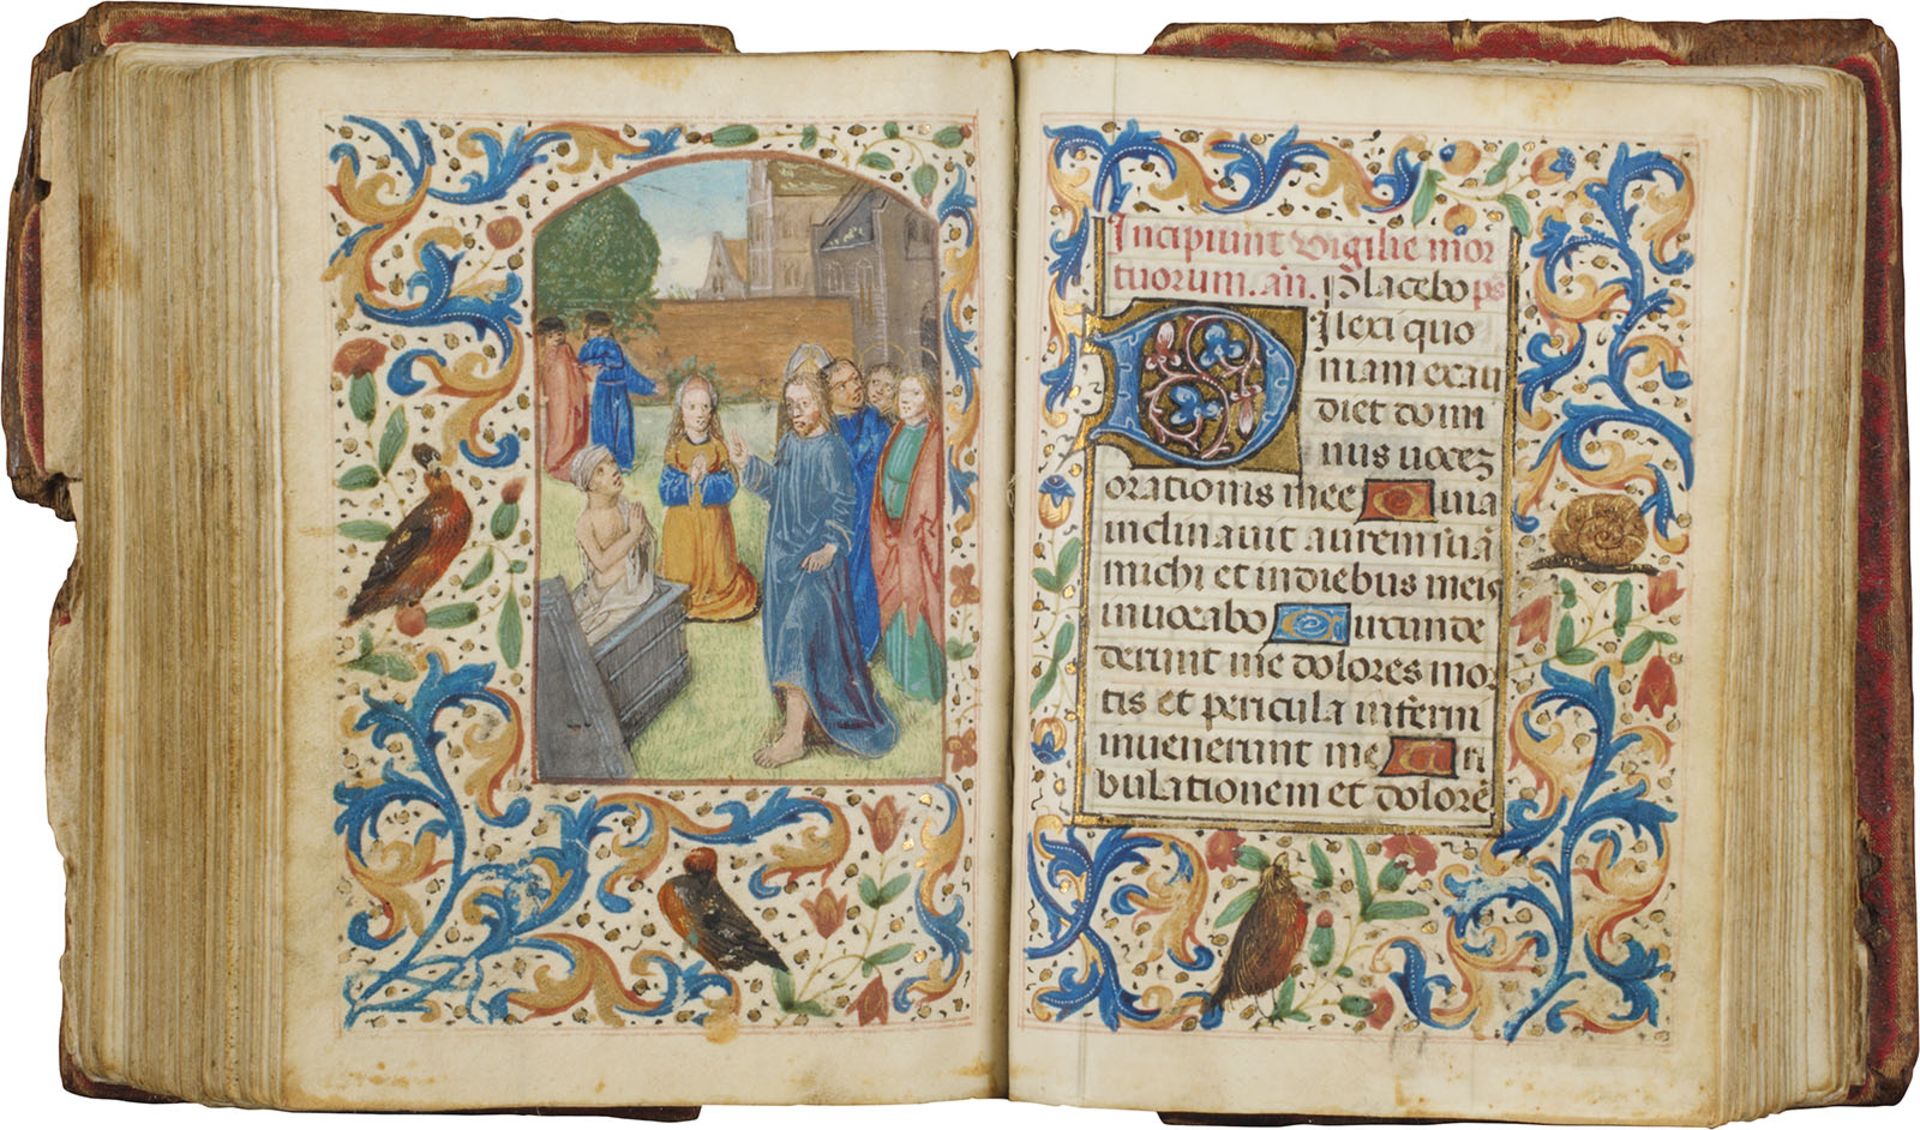 Incipiunt vigilie mor
tuorum. an. Placebo ps
Dilexi quo
niam exau
diet domi
nus vocez
orationis mee Quia
inclinavit aurem suã
michi et in diebus meis
invocabo Circunde
derunt me dolores mor
tis et pericula inferni
invenerunt me Tri
bulationem et dolorẽ